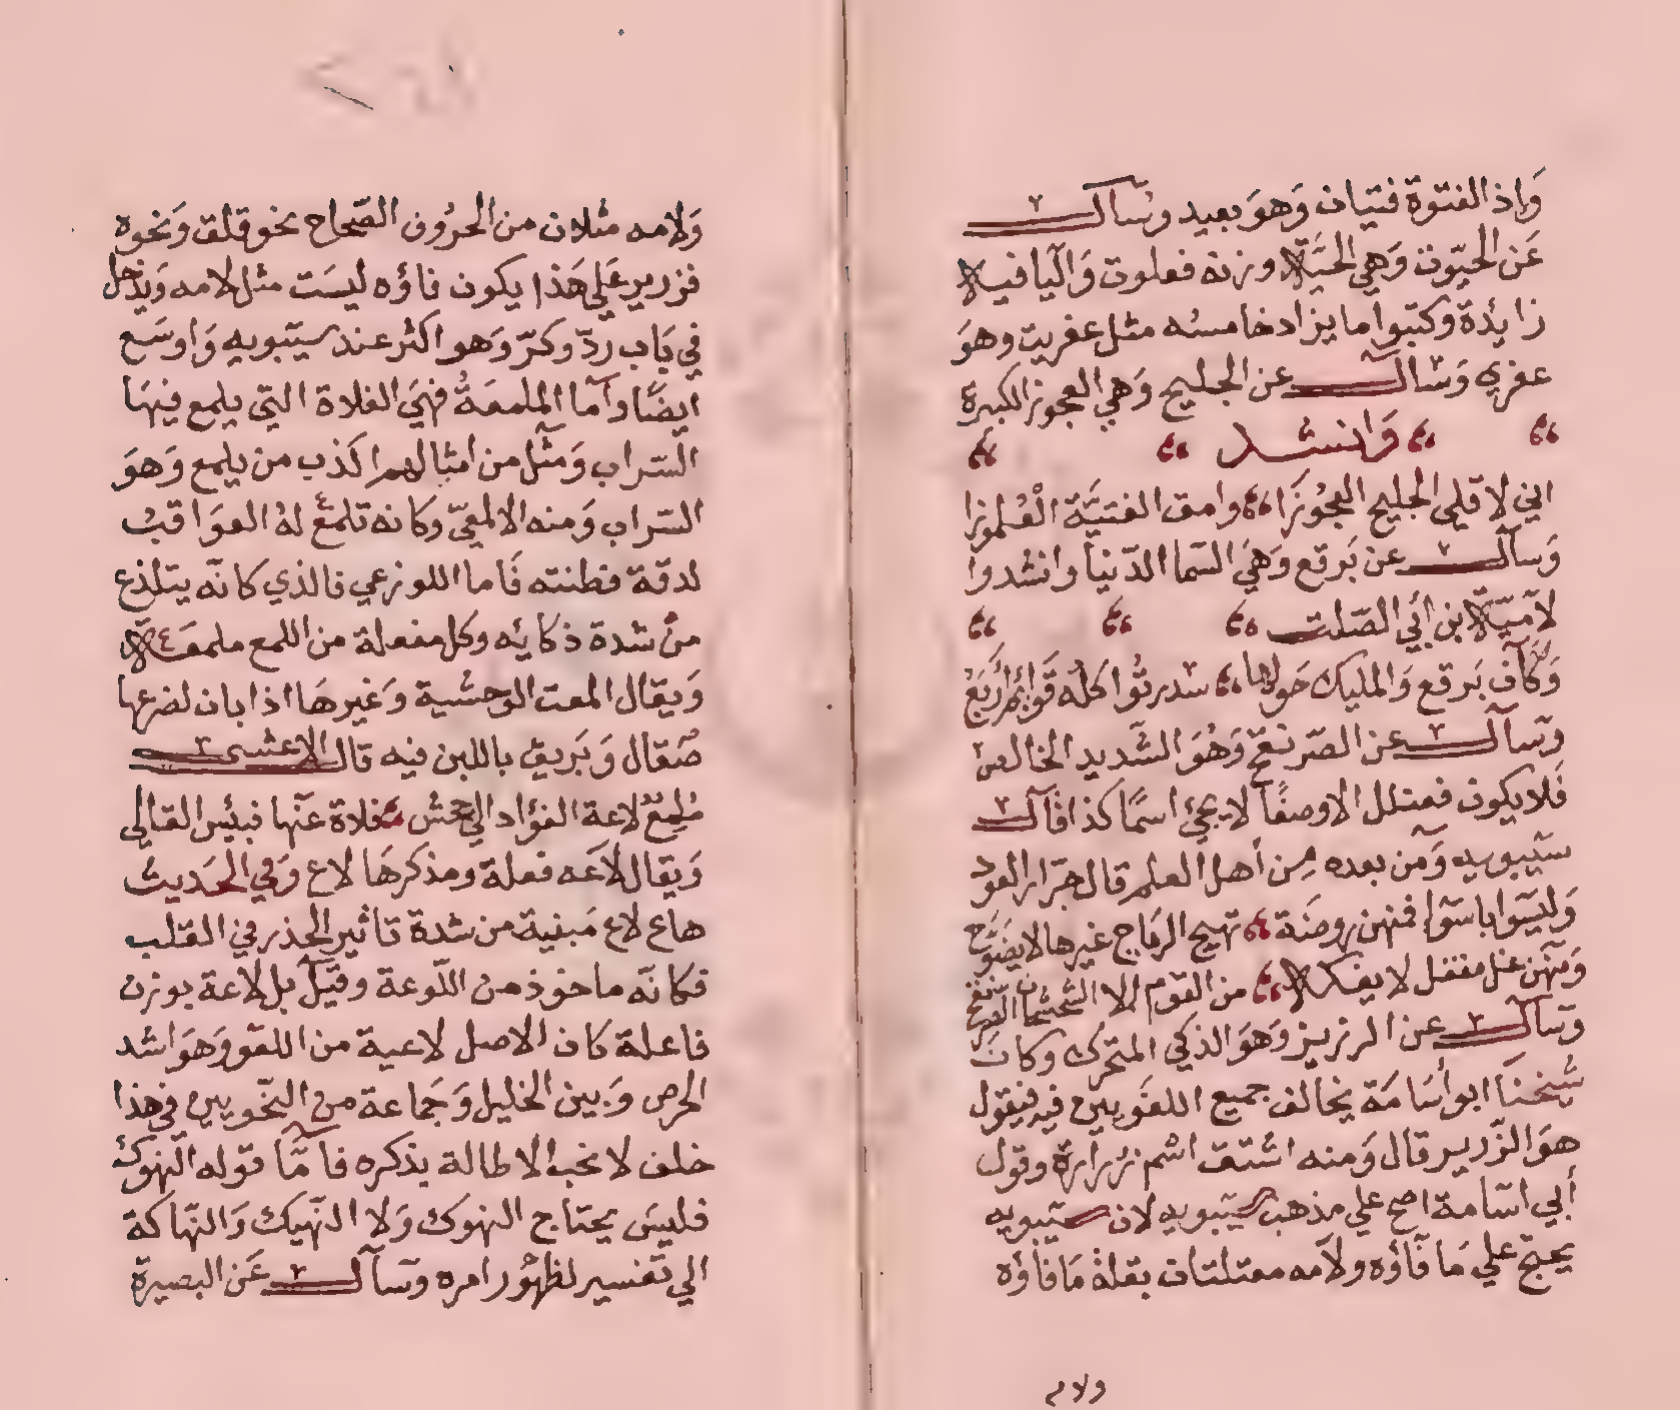 وَاِذ الفتوة فتيان وَهوَ بعيد وسَاَلـــت
عَن الحيّوت وَهي الحَيَّة وزنه فعلوت وَاليا فيه
زايدة وكتبوا ما يزاد خامسُه مثل عفريت وهوَ
عفري وَسَاَلـــت عن الجليح وَهي العجوز الكبيرة
وَانشد
اني لا قلي الجليح العجُوزَا وامق الفتيَّة العُلموزا
وَسآلـــت عن بَرقع وَهيَ السّما الدّنيا وانشدوا
لاميّة بن أبي الصّلت
وَكَآن بَرقع وَالمليك حَولها سدر تُوا كله قَوائم أربَعُ
وسَآلـــت عن الصّرنقح وَهُوَ الشّديد الخالص
فَلا يكون فعنلل الا وصفًا لا يجئ اسمًا كذا قَالـــت
سيبويه وَمن بعده مِن أهل العلم قال جرّار العود
وَليسَوا باسوَا فمنهن روضَة تهيج الرياج غيرها لا يضوّح
وَمنهن غل مقفل لا يفكه من القوم الا الشحشحان الصرنقح
وسَآلـــت عن الرزيز وَهوَ الذكي المتحرك وكانَ
شيخنَا ابو أسَامَة يخالف جميع اللغَويين فيه فيقول
هوَ الزّرير قال وَمنه اشتق اسْم زرارة وقول
أبي اسَامة اصح علي مذهب سيبويه لان سيبويه
يحتج علي مَا فاؤه ولامه معتلتان بقلة مَا فاؤه
ولام
وَلامه مثلان من الحرُوف الصّحاح نحو قلق وَنحوه
فزرير عَلي هَذا يكون فاؤه ليسَت مثل لامه وَيدخل
في بَاب ردّ وكرّ وَهو اكثر عند سيبويه وَاوسَع
ايضًا وآما الملمعَةُ فهيَ الفلاة التي يلمع فيهَا
السّراب وَمثل من امثالهم اكذب من يلمع وَهوَ
السّراب وَمنه الالمعيّ وكانه تلمعُ لهُ العوَاقبُ
لدقة فطنته فَاما اللوزعي فالذي كانّه يتلذع
منْ شدة ذكائه وكل مفعلة من اللمع ملمعَة
وَيقال المعت الوحشية وَغيرهَا اذا بان لضرعها
صَقال وَبَريق باللبن فيه قال الاعشى
مُلمِعٌ لاعة الفؤاد الي جحش فلاة عنها فبئس القالي
وَيقال لاعَه فعلة ومذكرهَا لاع وَفي الحَديث
هاع لاع مَبنية من شدة تاثير الحذر في القلب
فكانّه ماخوذ من اللّوعة وقيل بل لاعة بوزن
فاعلة كان الاصل لاعية من اللعَو وَهوَ اشد
الحرص وَبين الخليل وَجَماعة من النّحَويين في هذا
خلف لا نحب الاطالة بذكره فآمّا قوله النهوك
فليسَ يحتاج النهوك وَلا النّهيك وَالنّهاكة
الي تفسير لظهُور امره وسَآلـــت عَن البصيرة